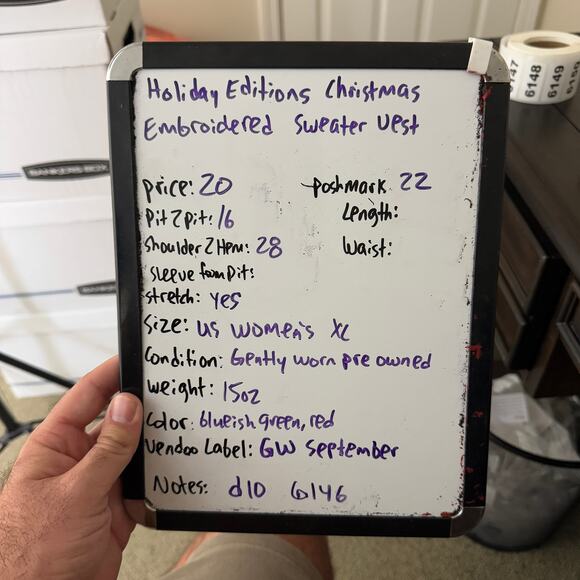 Holiday Editions Christmas
Embroidered Sweater Vest
price: 20
poshmark 22
pit 2 pit: 16
Length:
Shoulder 2 Hem: 28
Waist:
Sleeve from pits:
stretch: yes
Size: US Women's XL
Condition: Gently worn pre owned
weight: 15oz
Color: blueish green, red
Vendoo Label: GW September
Notes: d10 6146
BANKERS BOX
6148
6149